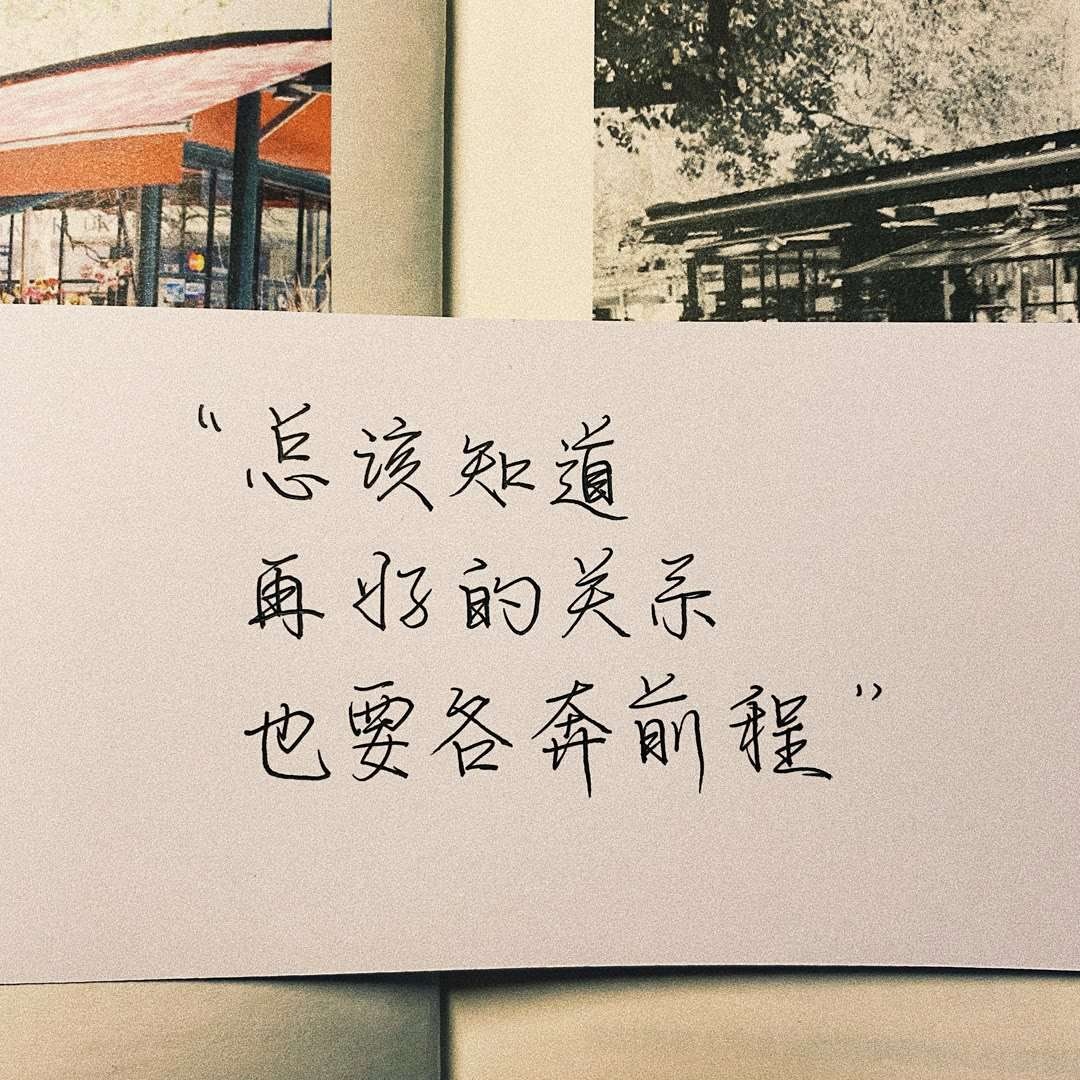 “总该知道
再好的关系
也要各奔前程”